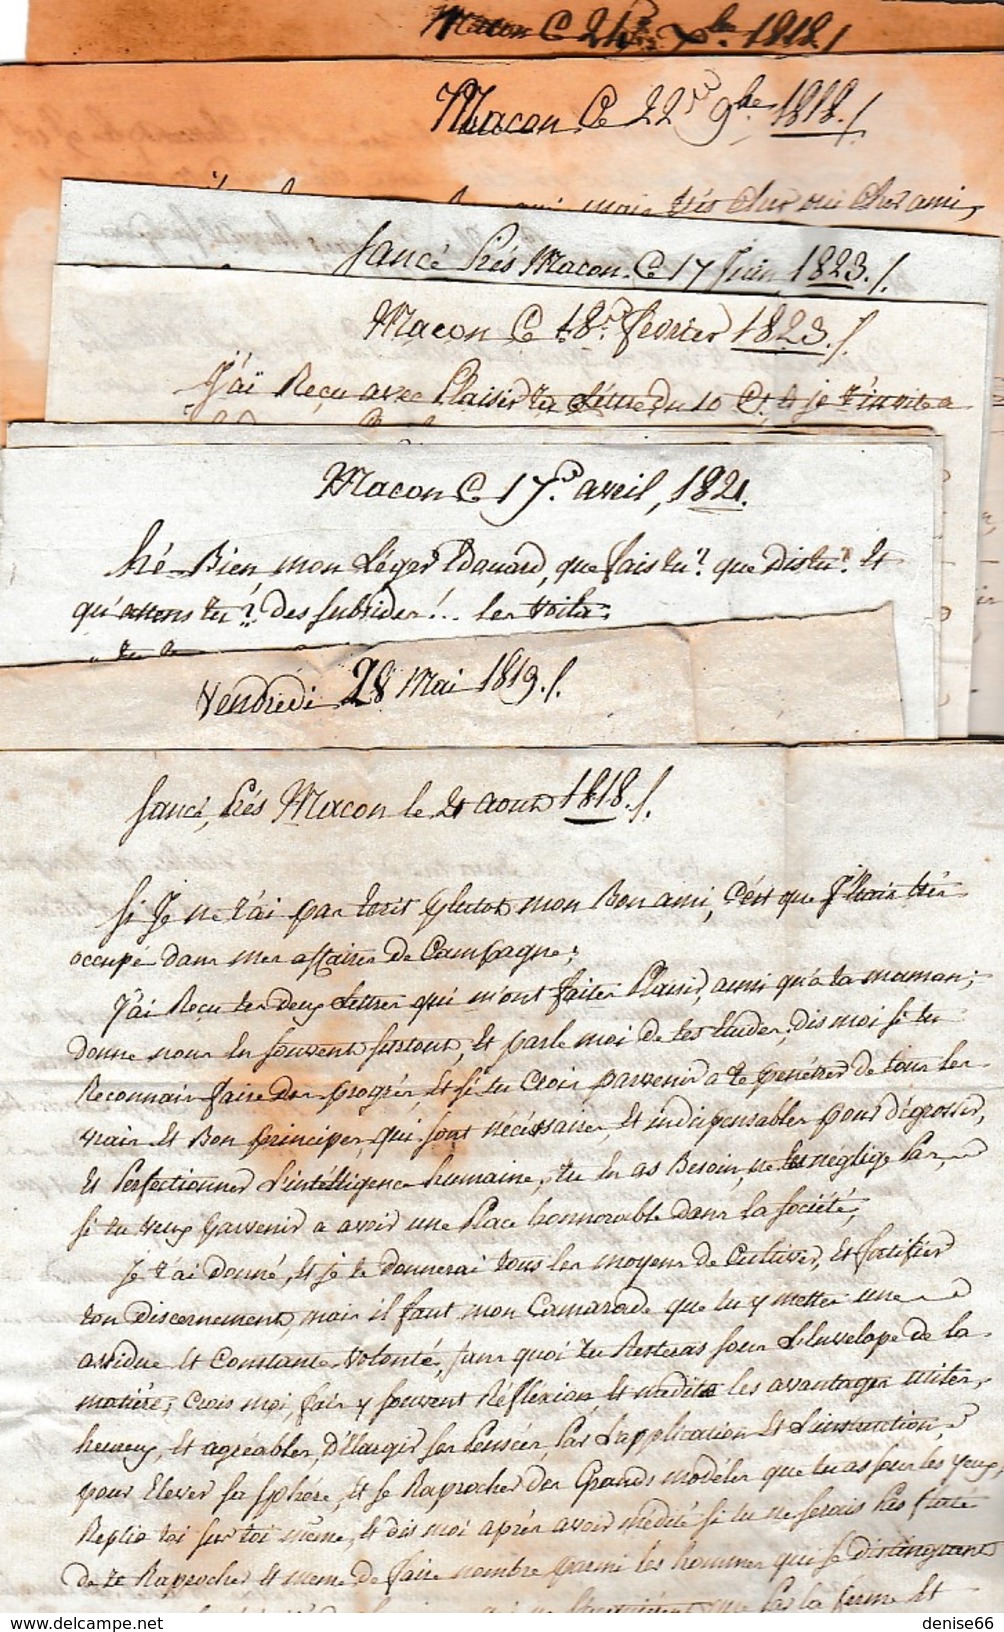 Macon Ce 24e Xbre 1818./
Macon Ce 22re 9bre 1818./
mais très cher ami,
Sancé Près Macon Ce 17 Juin 1823./
Macon Ce 18e février 1823./
J'ai Reçu avec Plaisir ta Lettre du 10 Ct. & je t'invite a
Macon Ce 17e avril, 1821.
hé Bien, mon Léger Edouard, que fais tu? que Dis tu? Et
qu'attens tu? Des subsides!... les voila;
Vendredi 28 Mai 1819./
Sancé, Près Macon le 21 aout 1818./
Si Je ne t'ai pas Ecrit plutot mon Bon ami, C'est que J'étais très
occupé dans mes affaires de Campagne;
J'ai Reçu tes deux Lettres qui m'ont faites Plaisir, ainsi qu'a ta maman;
donne nous en souvent surtout, Et parle moi de tes Etudes; dis moi si tu
Reconnais faire des progrès, Et si tu Crois parvenir a te penétrer de tous les
vrais Et Bons principes, qui sont nécéssaires, Et indispensables pour dégrossir,
Et Perfectionner L'intélligence humaine, tu En as Besoin, ne les néglige Pas,
si tu veux Parvenir a avoir une Place honnorable dans la Société;
Je t'ai donné, Et je te donnerai tous les moyens de Cultiver, Et fortifier
ton Discernement, mais il faut mon Camarade que tu y mettes une
assidue Et Constante Volonté, sans quoi tu Resteras sous L'Envelope de la
matière; Crois moi, fais y souvent Réfléxion, Et medite les avantages utiles,
heureux, Et agréables, D'élargir ses Pensées, Par L'application Et L'instruction,
pour Elever sa sphére, Et se Raprocher des Grands modèles que tu as sous les yeux,
Replie toi sur toi même, Et dis moi après avoir médité si tu ne serais Pas flaté
de te Raprocher Et meme de faire nombre parmi les hommes qui se distinguent
Par la ferme Et
denise66